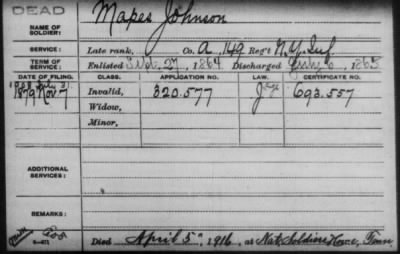 DEAD
NAME OF SOLDIER: Mapes Johnson
SERVICE: Late rank, Co. A, 149 Reg't N.Y. Inf.
TERM OF SERVICE: Enlisted 27, 1864 Discharged July 6, 1865
DATE OF FILING. CLASS. APPLICATION NO. LAW. CERTIFICATE NO.
1879 Nov. 7 Invalid, 320.577 693.557
Widow,
Minor,
ADDITIONAL SERVICES:
REMARKS:
Died April 5", 1916, at Nat. Soldiers Home, Tenn